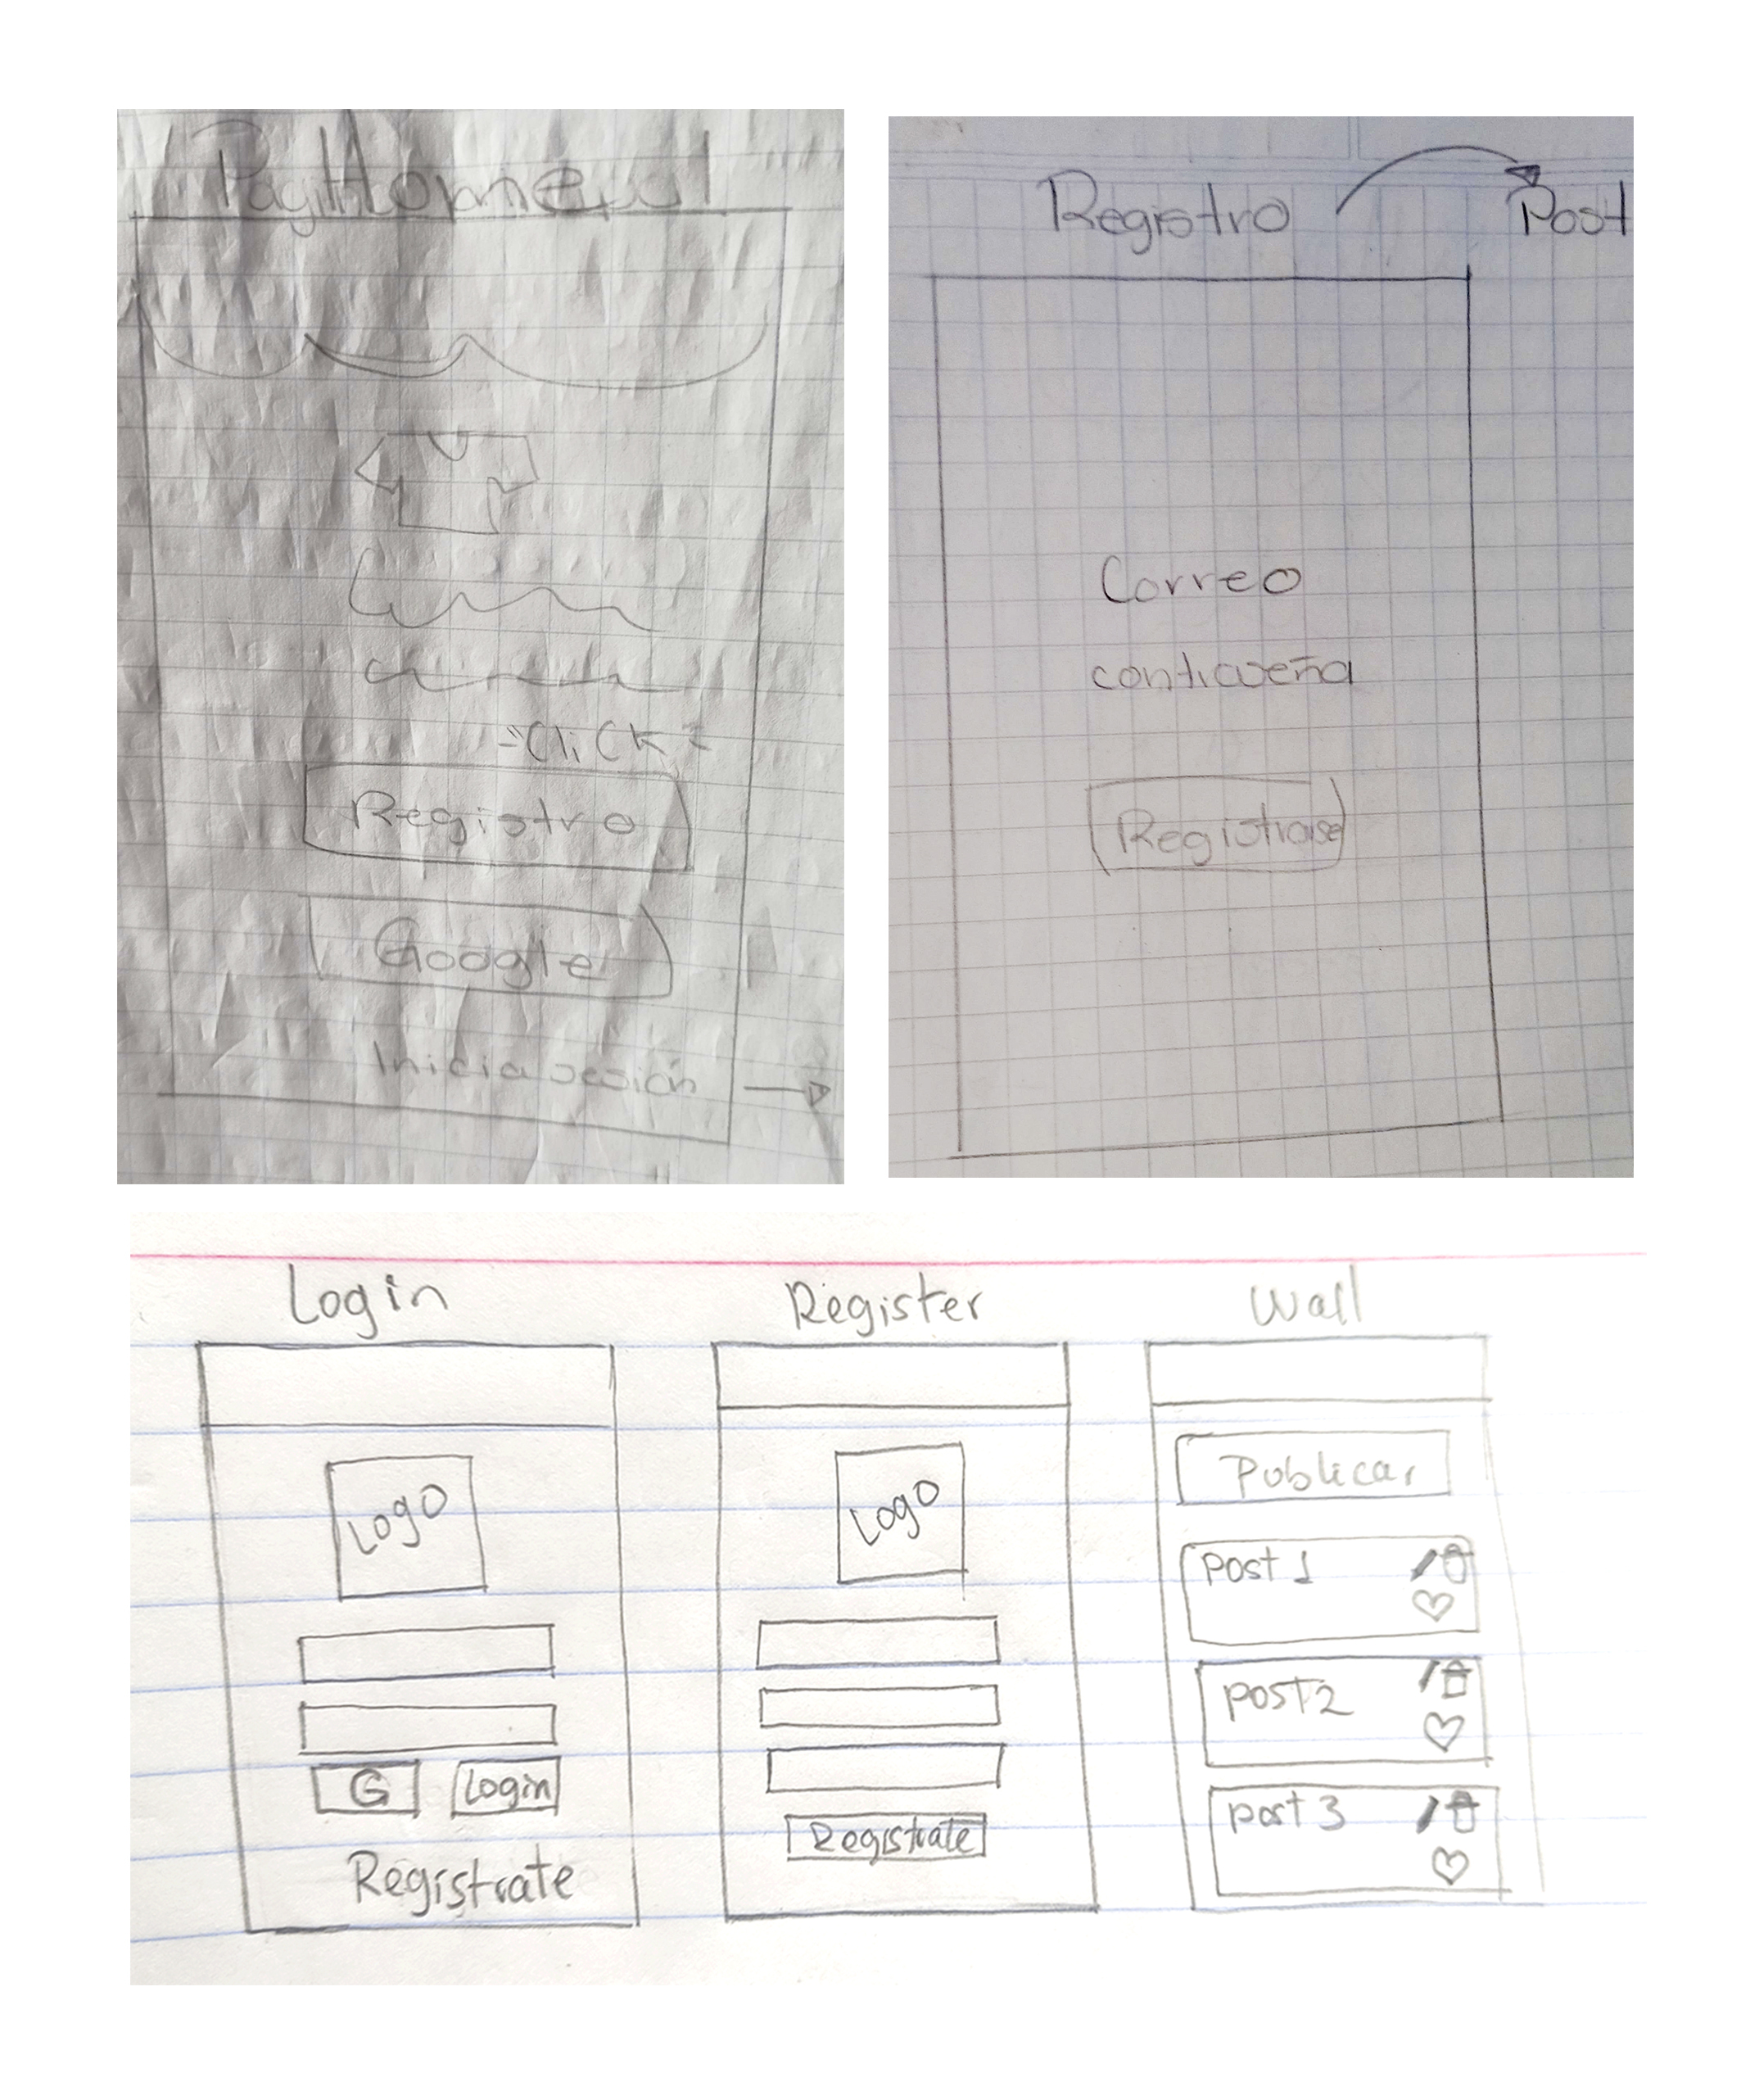 Home
=Click=
Registro
Google
Inicia sesión
Registro
Post
Correo
contraseña
Registrase
Login
Logo
G
Login
Registrate
Register
Logo
Registrate
Wall
Publicar
post 1
post 2
post 3